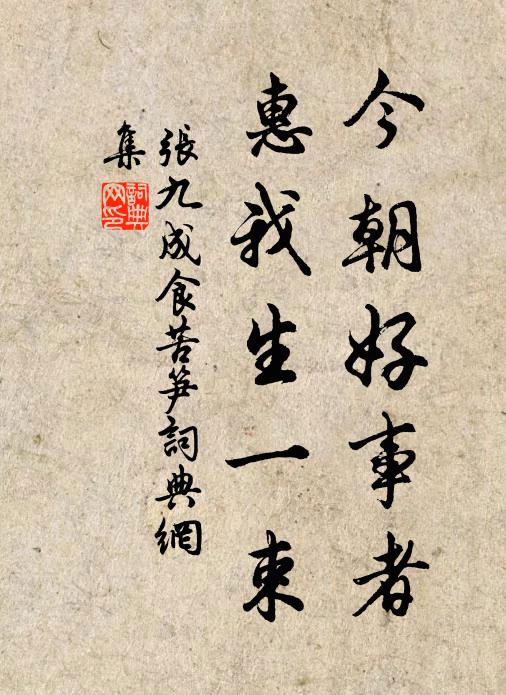 今朝好事者
惠我生一束
張九成食苦笋詞典網
集
詞典网印